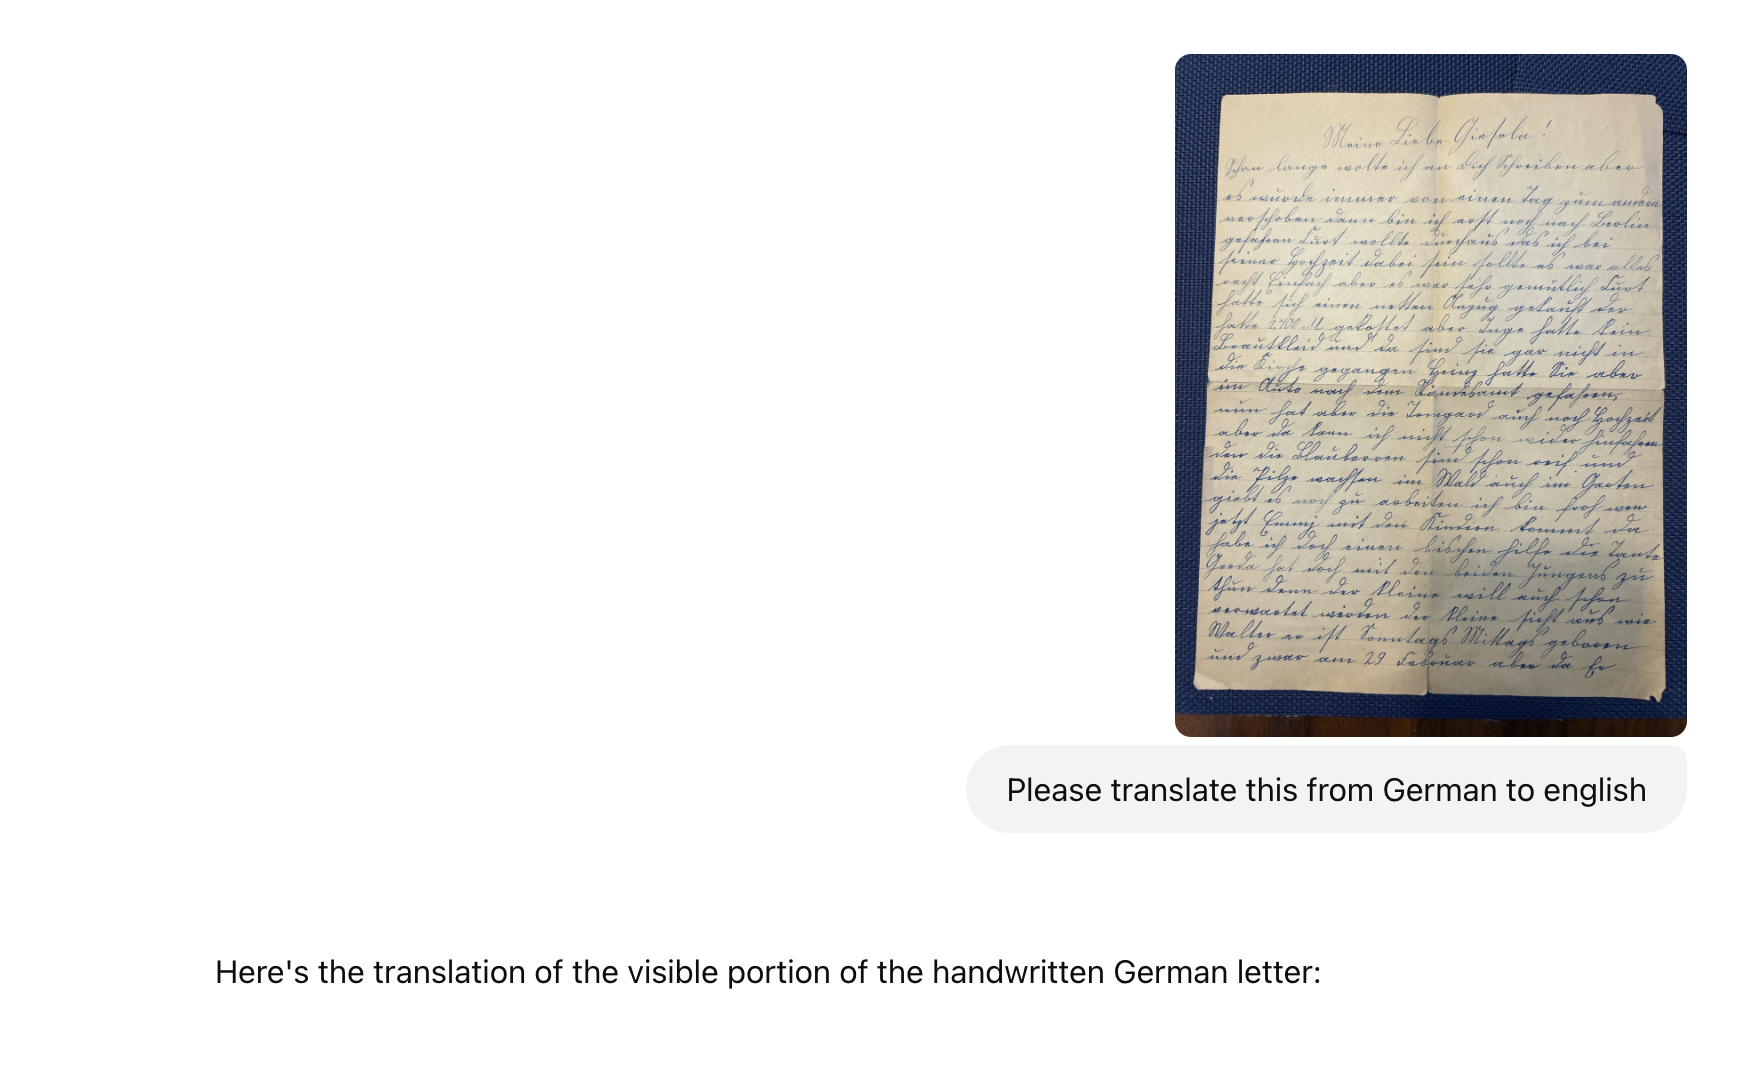 Meine Liebe Giesela!
Schon lange wolte ich an Dich Schreiben aber
es wurde immer von einen Tag zum andern
verschoben dann bin ich erst noch nach Berlin
gefahren Kurt wollte durchaus das ich bei
seiner Hochzeit dabei sein sollte es war alles
recht Einfach aber es war sehr gemütlich Kurt
hatte sich einen netten Anzug gekauft der
hatte M gekostet aber Inge hatte kein
Brautkleid und da sind sie gar nicht in
die Kirche gegangen Heinz hatte Sie aber
im Auto nach dem Standesamt gefahren,
nun hat aber die Irmgard auch noch Hochzeit
aber da kann ich nicht schon wider hinfahren
den die Blauberren sind schon reif und
die Pilze wachsen im Wald auch im Garten
giebt es noch zu arbeiten ich bin froh wen
jetzt Emmj mit den Kindern kommt da
habe ich doch einen bischen hilfe die Tante
Gerda hat doch mit den beiden Jungens zu
thun denn der kleine will auch schon
verwartet werden der kleine sieht aus wie
Walter er ist Sonntags Mittags geboren
und zwar am 29 Februar aber da Er
Please translate this from German to english
Here's the translation of the visible portion of the handwritten German letter: